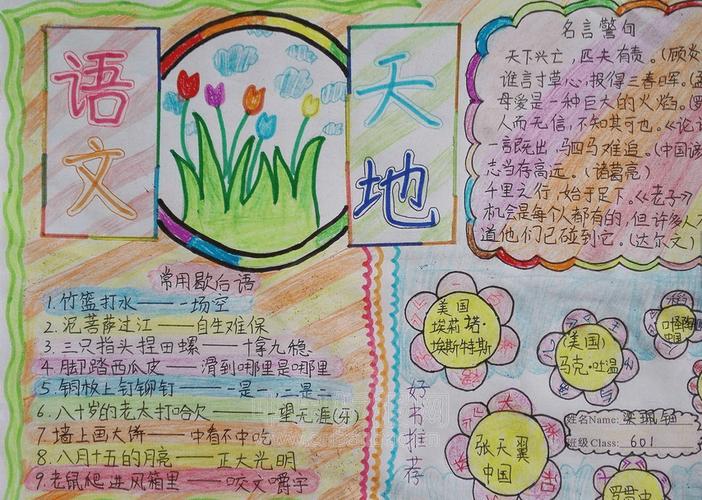 语文
天地
名言警句
天下兴亡，匹夫有责。(顾炎
谁言寸草心，报得三春晖。(孟
母爱是一种巨大的火焰。(罗
人而无信，不知其可也。《论语
一言既出，驷马难追。(中国谚
志当存高远。(诸葛亮)
千里之行，始于足下。《老子》
机会是每个人都有的，但许多人不
道他们已碰到它。(达尔文)
常用歇后语
1.竹篮打水——一场空
2.泥菩萨过江——自生难保
3.三只指头捏田螺——十拿九稳
4.脚踏西瓜皮——滑到哪里是哪里
5.铜板上钉铆钉——一是一，二是二
6.八十岁的老太打哈欠——一望无涯(牙)
7.墙上画大饼——中看不中吃
8.八月十五的月亮——正大光明
9.老鼠爬进风箱里——咬文嚼字
好书推荐
美国
埃莉诺·
埃斯特斯
(美国)
马克·吐温
中国
张天翼
中国
姓名Name:
班级Class: 601